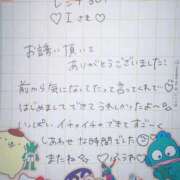 ♡Iさま♡
お誘い頂いて
ありがとうございました!
前から気になってたって言ってくれて♡
はじめましてできてうれしかったよ〜
いっぱいイチャイチャできてすごーく
しあわせな時間でした♡
またね